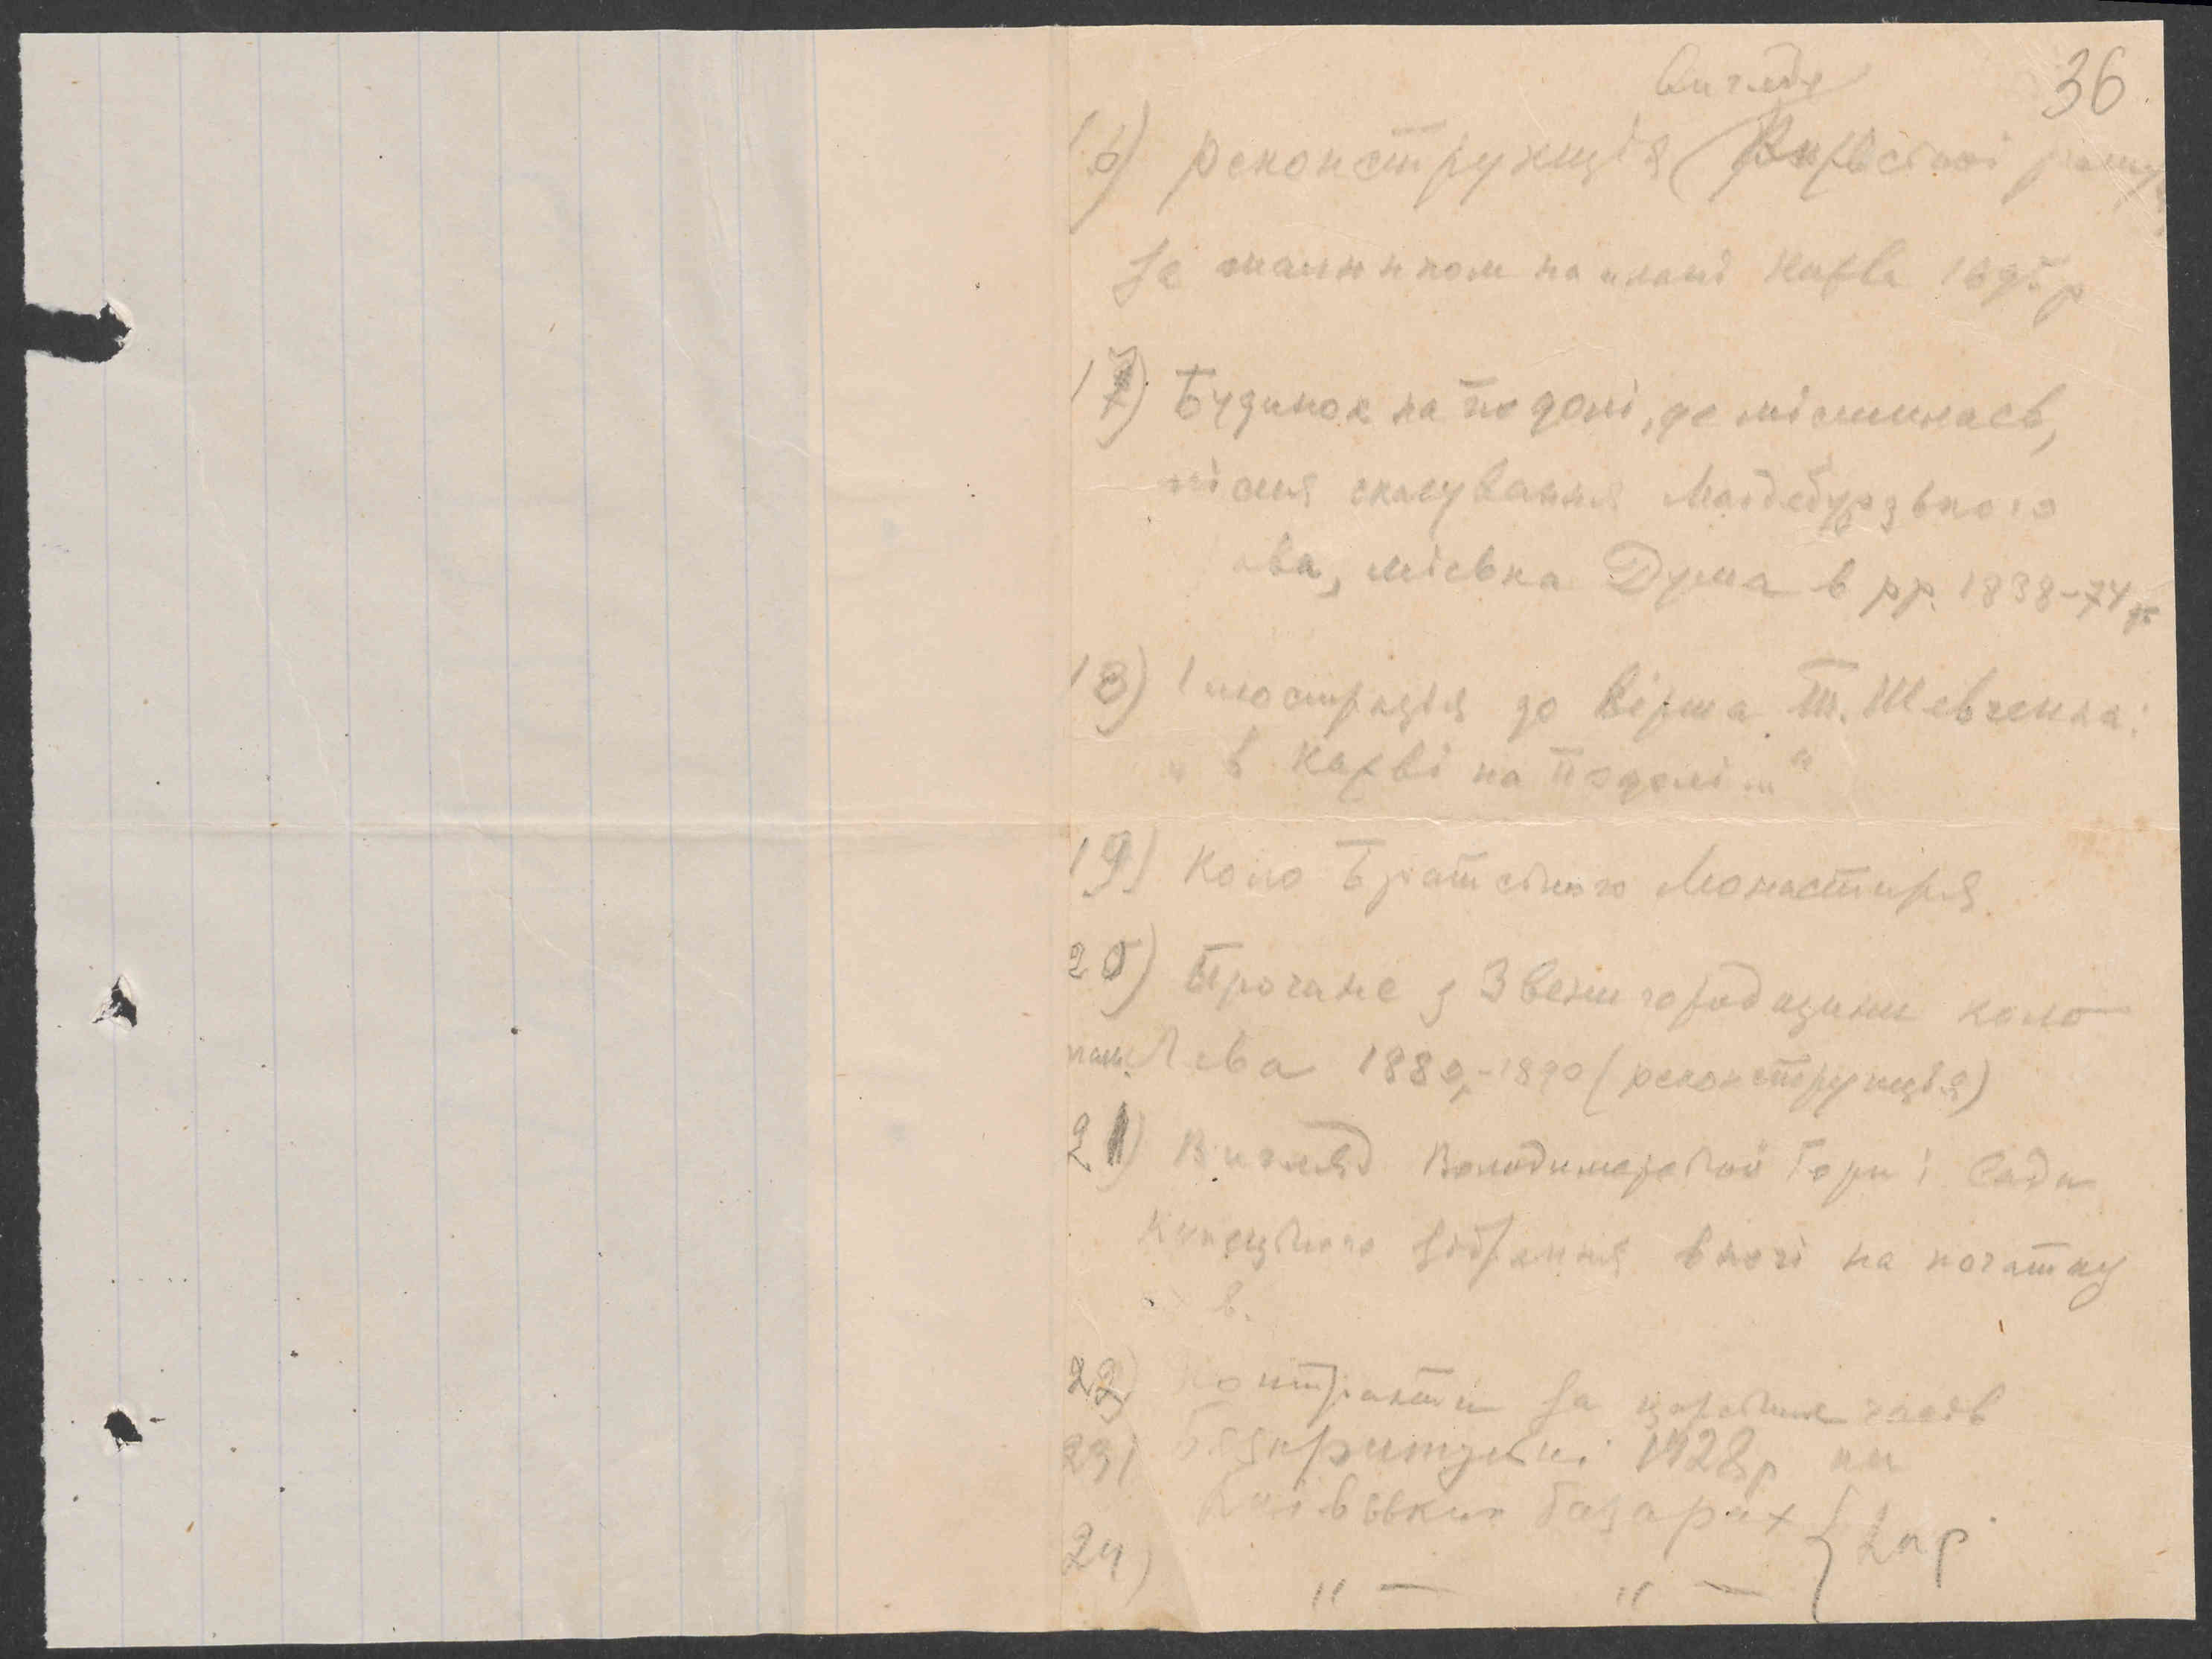 36
вигляду
16) реконструкція Київської ратуші
за малюнком на плані Києва 1695 р
17) Будинок на Подолі, де містилась,
після скасування Магдебурзького
ва, міська Дума в рр. 1838-74
18) Ілюстрація до вірша Т. Шевченка:
„в Києві на Подолі..."
19) Коло Братського Монастиря
20) Прочане з Звенигородщини коло
Лева 1889-1890 (реконструкція)
21) Вигляд Володимирської Гори і Саду
Купецького Зібрання вночі на початку
в.
22) Контракти за царських часів
23) Безпритульні 1928р на
Київських базарах
24) „ — „ — } 2 пр